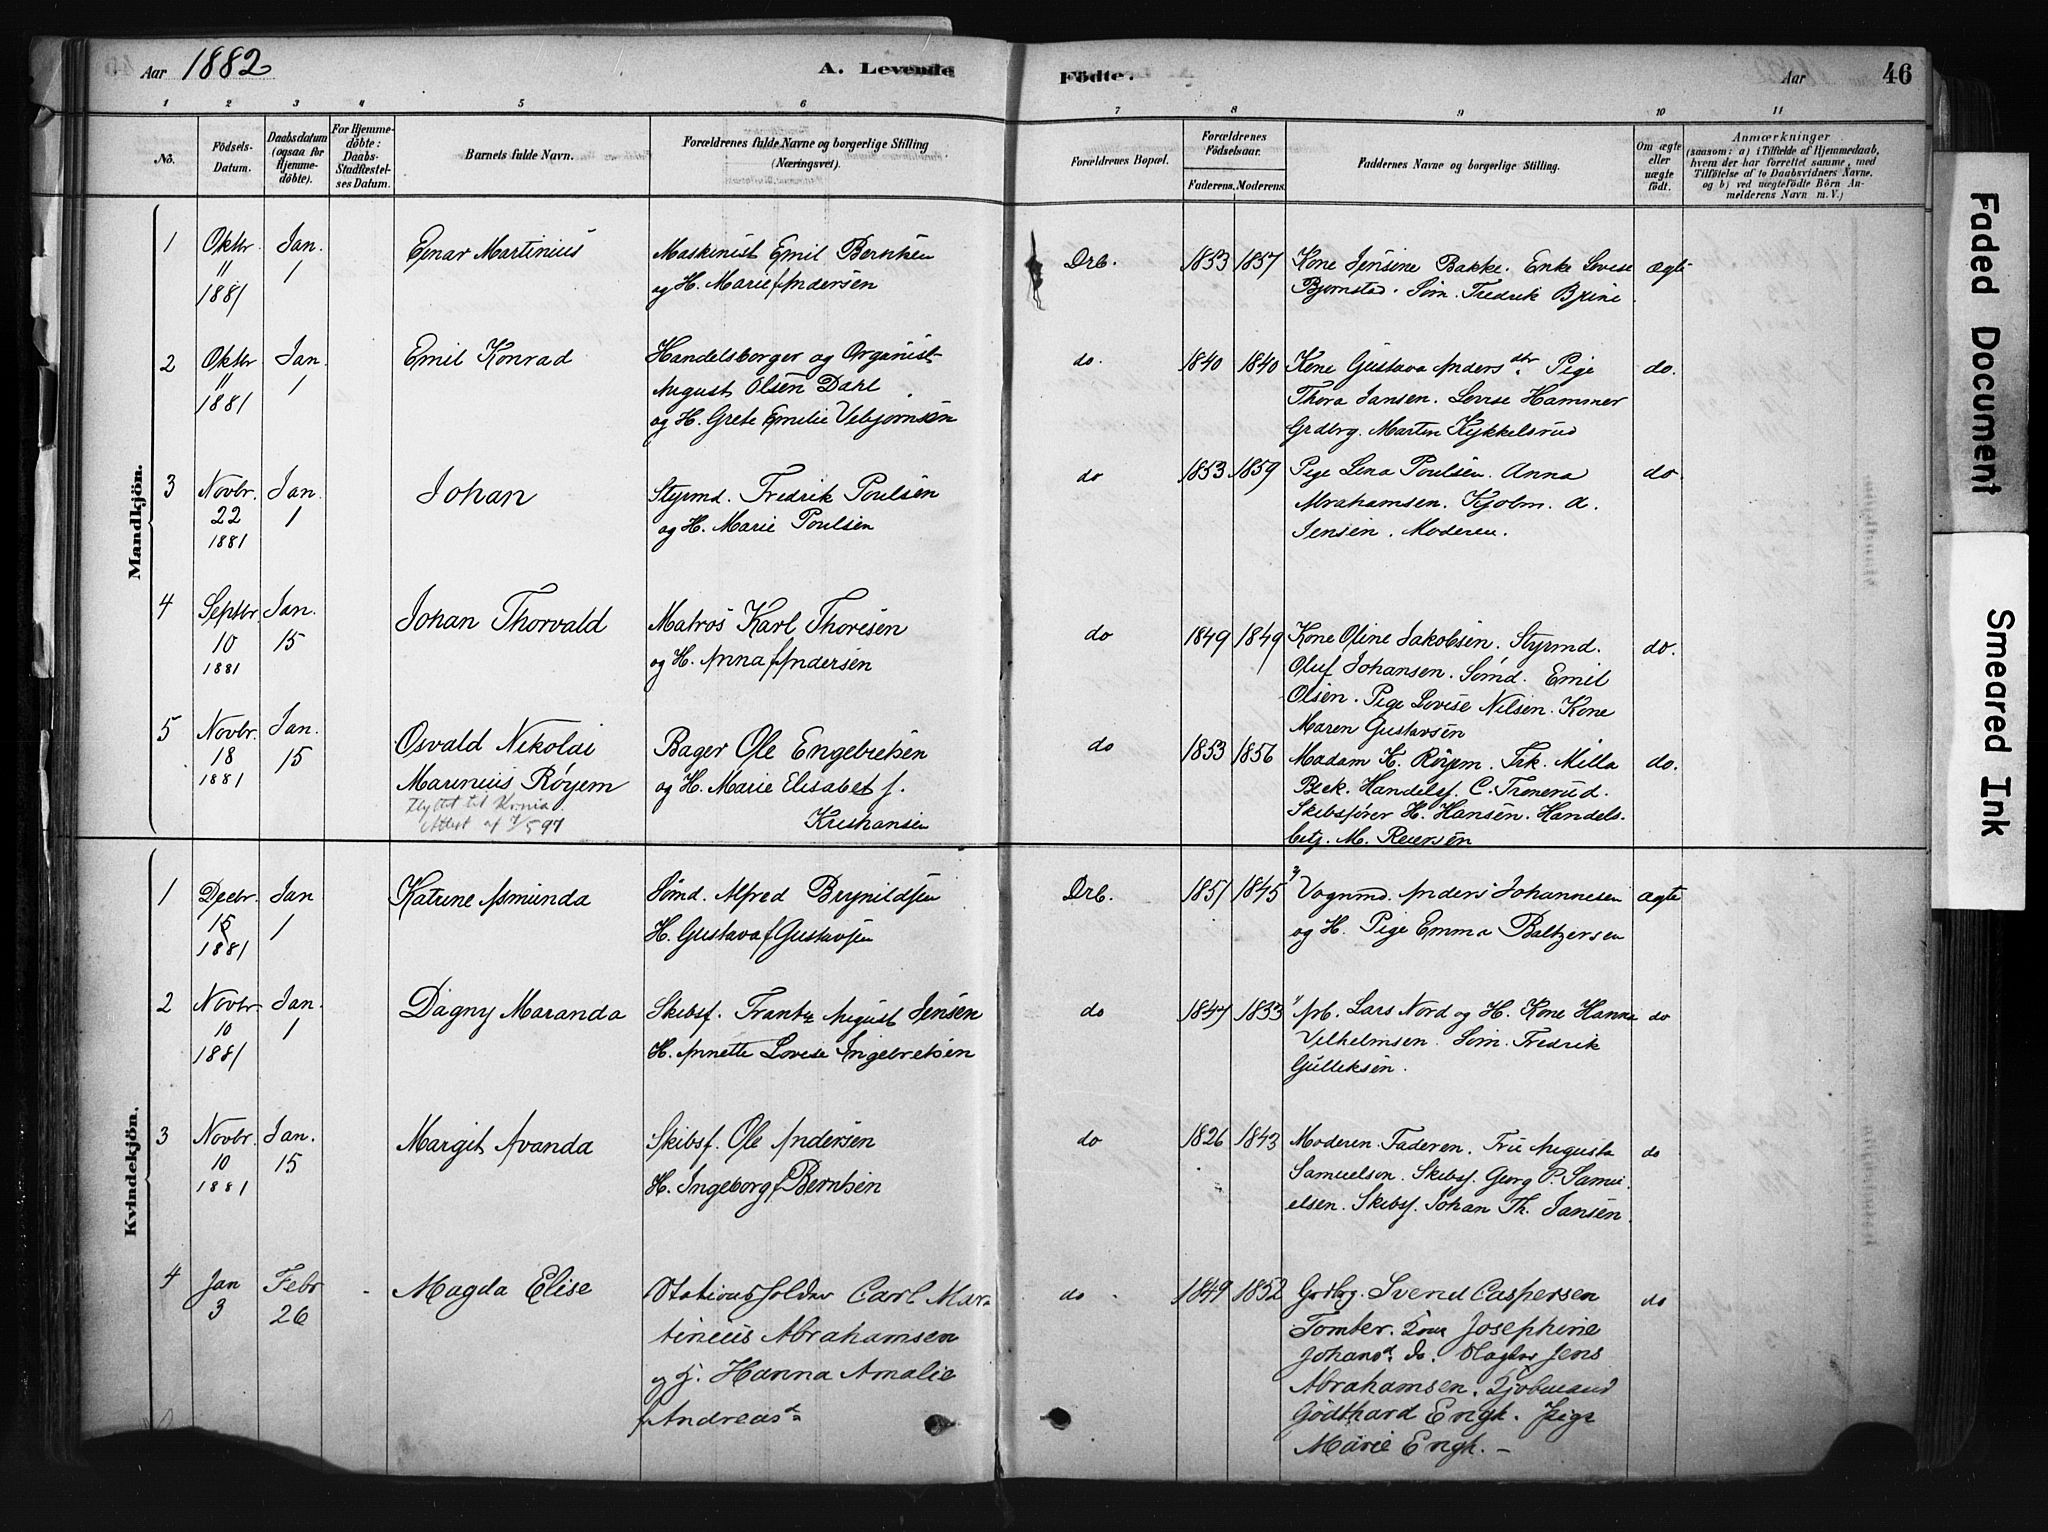 Aar 1882 A. Levende Födte. Aar 46
1 2 3 4 5 6 7 8 9 10 11
No. Födsels-Datum. Daabsdatum (ogsaa for Hjemme-döbte). For Hjemme-döbte: Daabs-Stadfæstel-ses Datum. Barnets fulde Navn. Forældrenes fulde Navne og borgerlige Stilling (Næringsvei). Forældrenes Bopæl. Forældrenes Födselsaar. Faderens. Moderens. Faddernes Navne og borgerlige Stilling. Om ægte eller uægte födt. Anmærkninger (saasom: a) i Tilfælde af Hjemmedaab, hvem der har forrettet samme, med Tilföielse af to Daabsvidners Navne, og b) ved uægtefödte Börn An-melderens Navn m. V.)
Mandkjön.
1 Oktbr. 11 1881 Jan. 1 Ejnar Martinius Maskinist Emil Berntsen Drb. 1853 1857 Kone Jensine Bakke. Enke Lovise ægte
og H. Marie f Andersen Bjørnstad. Søm. Fredrik
2 Oktbr 11 1881 Jan. 1 Emil Konrad Handelsborger og Organist do. 1840 1840 Kone Gustava Anders dtr. Pige do.
August Olsen Dahl Thora Jansen. Lovise Hammer
og H. Grete Emilie Vebjørnsen Grdbrg. Marten Kykkelsrud
3 Novbr. 22 1881 Jan. 1 Johan Styrmd. Fredrik Poulsen do 1853 1859 Pige Lina Poulsen. Anna do.
og H. Marie Poulsen Abrahamsen. Kjøbm. A.
Jensen. Moderen.
4 Septbr 10 1881 Jan. 15 Johan Thorvald Matros Karl Thoresen do 1849 1849 Kone Oline Jakobsen. Styrmd. do.
og H. Anna f Andersen Oluf Johansen. Sømd. Emil
Olsen. Pige Lovise Nilsen. Kone
Maren Gustavsen
5 Novbr. 18 1881 Jan. 15 Osvald Nikolai Bager Ole Engebretsen do 1853 1856 Madam K. Røyem. Frk. Milla do.
Marinius Røyem og H. Marie Elisabet f. Beck. Handelsf. C. Trenerud.
Flyttet til Krnia. Kristiansen Skibsfører H. Hansen. Handels-
Attest af 7/5 97 betj. M. Reiersen
Kvindekjön.
1 Decbr. 15 1881 Jan 1 Katrine Asmunda Sømd. Alfred Brynildsen Drb. 1851 1845 Vognmd. Anders Johannesen ægte
H. Gustava f Gustavsen og H. Pige Emma Baltzersen
2 Novbr. 10 1881 Jan. 1 Dagny Maranda Skibsf. Frantz August Jensen do 1847 1833 Arb. Lars Nord og H. Kone Hanna do
H. Annette Lovise Ingebretsen Vilhelmsen. Søm. Fredrik
Gulliksen.
3 Novbr. 10 1881 Jan. 15 Margit Avanda Skibsf. Ole Andersen do 1826 1843 Moderen. Faderen. Fru Augusta do
H. Ingeborg f Berntsen Samuelson. Skibsf. Georg P. Samu-
elsen. Skibsf. Johan Th. Jansen.
4 Jan 3 Febr 26 - Magda Elise Stationsholder Carl Mar- do 1849 1852 Grdbrg. Svend Caspersen do
tinius Abrahamsen Tomter. Kone Josephine
og H. Hanna Amalie Johansd. do. Slagter Jens
f Andreasd. Abrahamsen. Kjøbmand
Godthard Engh. Pige
Marie Engh. -
Faded Document
Smeared Ink